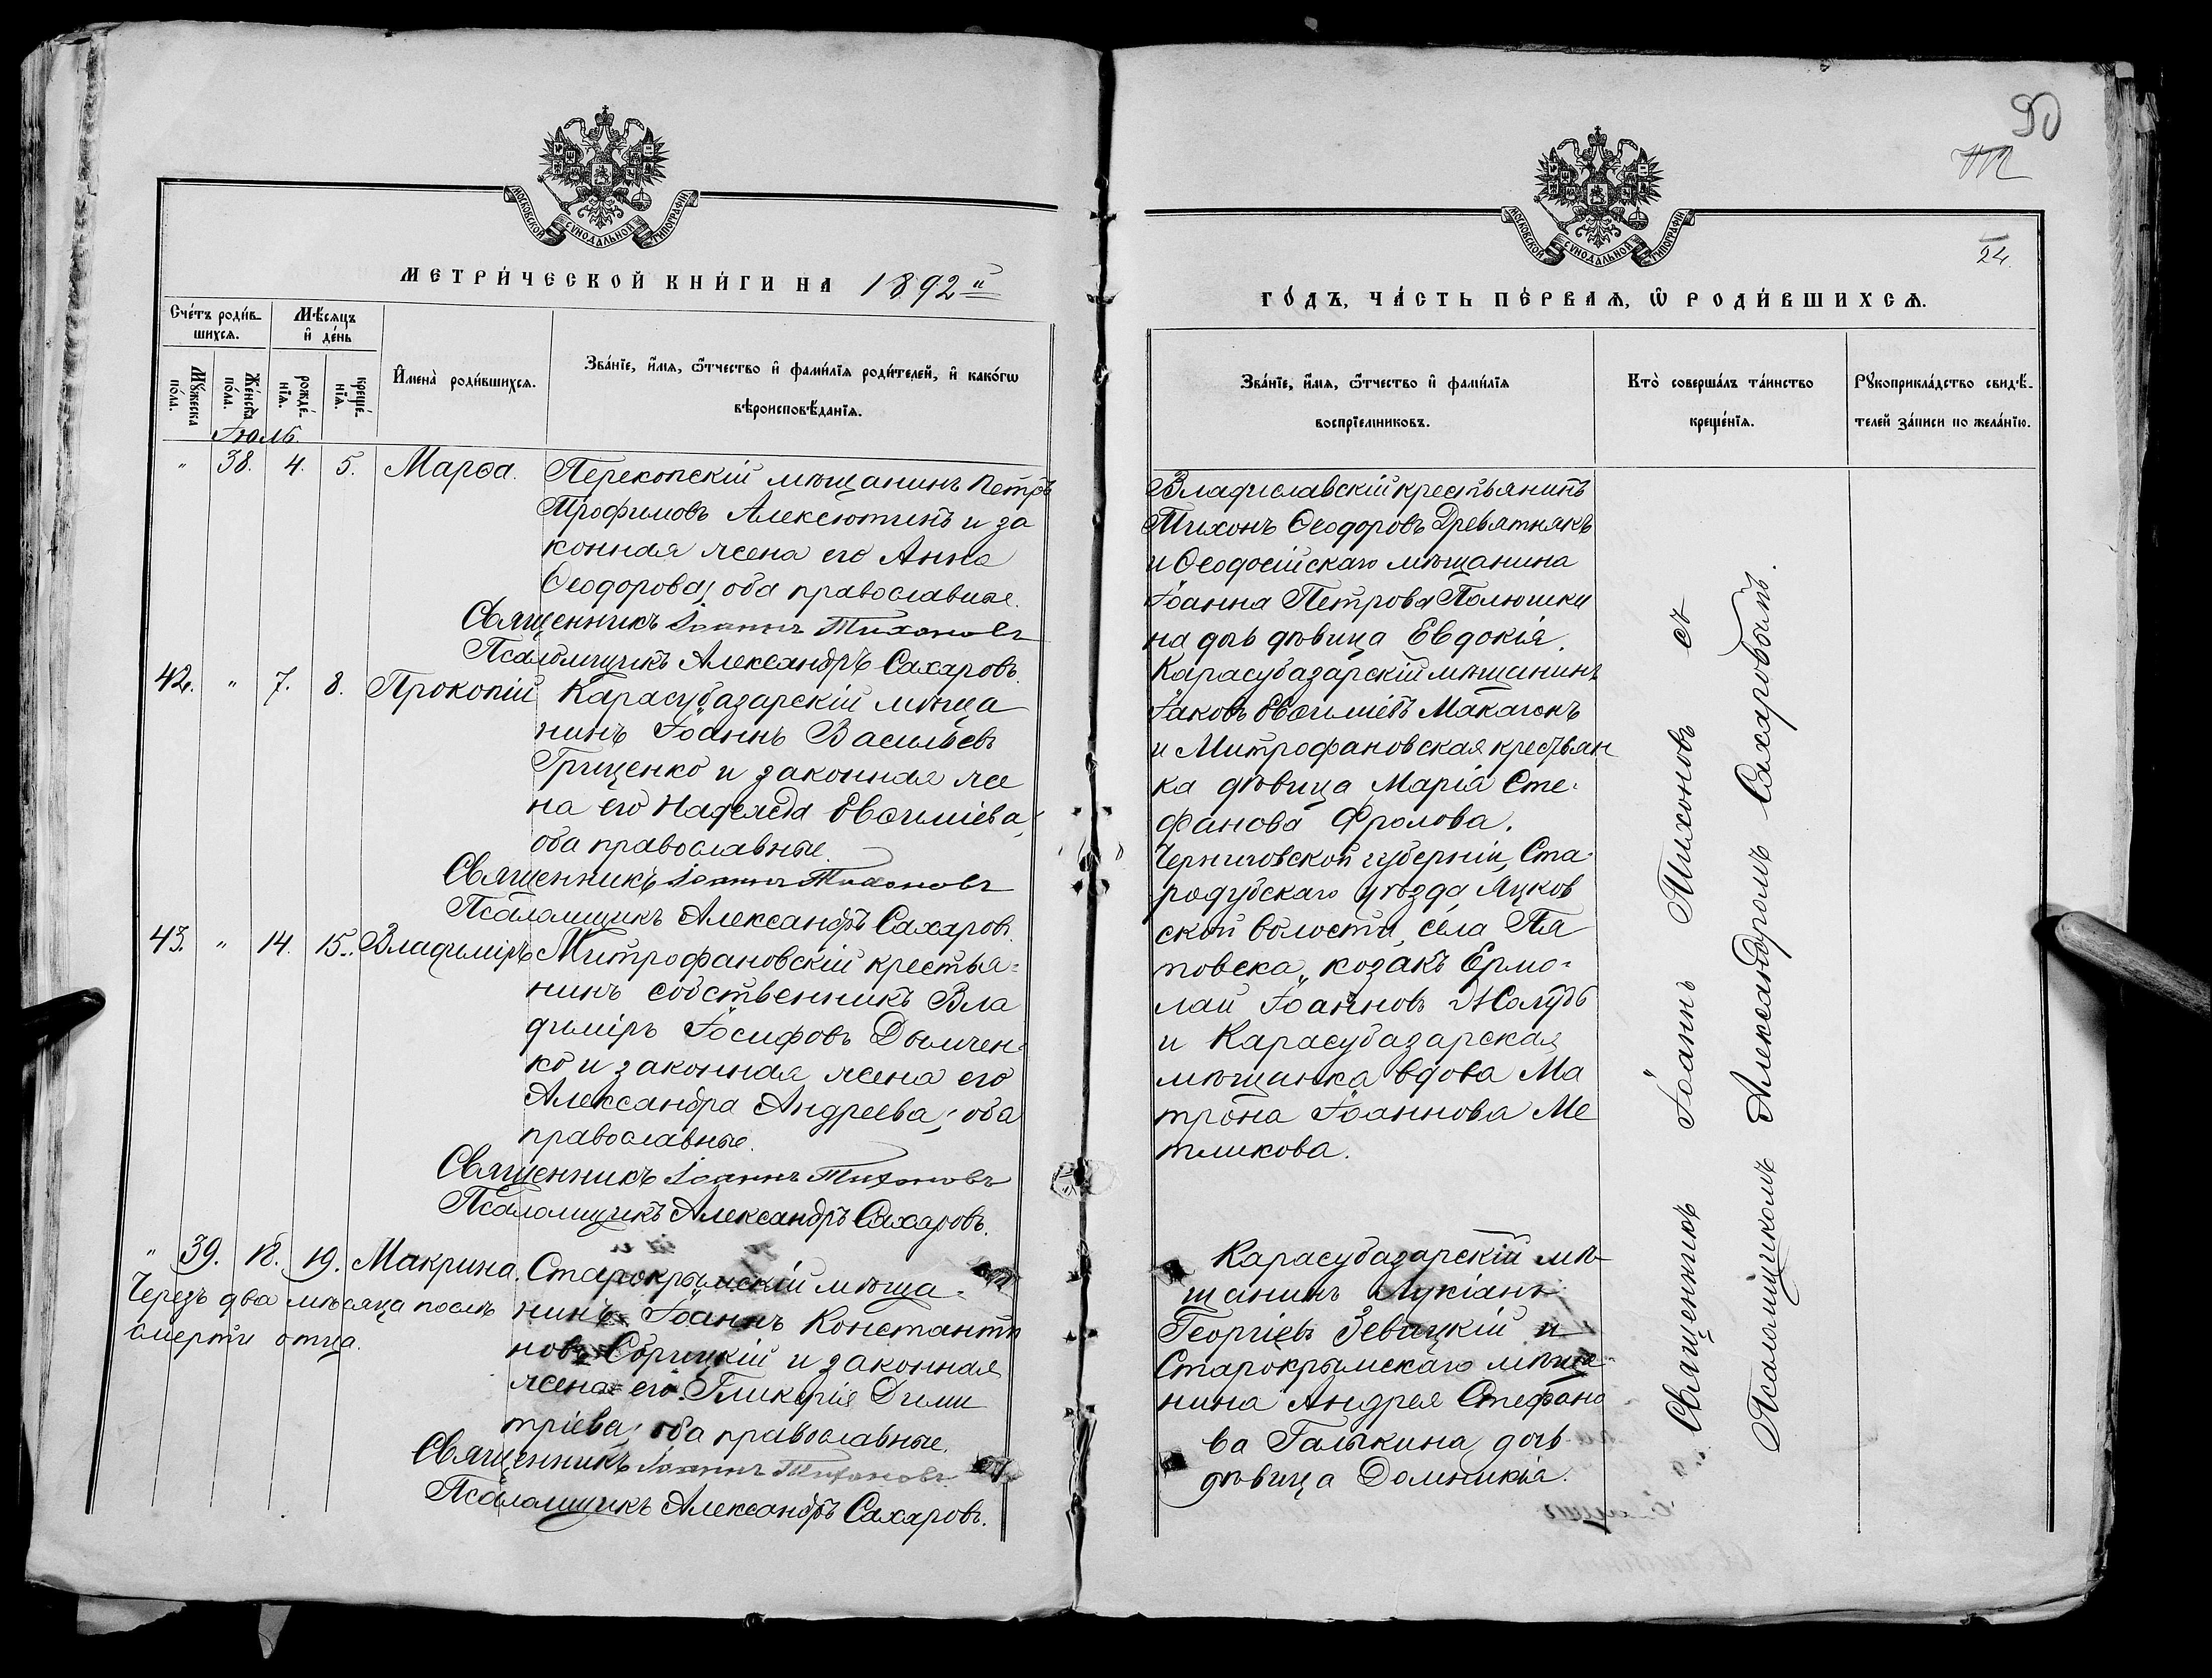 90
24.
МОСКОВСКОЙ СУНОДАЛЬНОЙ ТИПОГРАФІИ
МЕТРИ́ЧЕСКОЙ КНИ́ГИ НА 1892
Сче́тъ роди́в-
шихсѧ.
Мѣ́сѧцъ
и҆ де́нь
Мꙋ́жеска
по́ла.
Же́нска
по́ла.
рожде́-
нїѧ.
креще́-
нїѧ.
И҆мена̀ роди́вшихсѧ.
Зва́нїе, и҆́мѧ, ѻ҆́тчество и҆ фами́лїѧ роди́телей, и҆ како́гѡ
вѣроисповѣ́данїѧ.
Іюль.
" 38. 4. 5. Марѳа. Перекопскій мѣщанинъ Петръ
Трофимовъ Алексютинъ и за
конная жена его Анна
Ѳеодорова, оба православные.
Священникъ Іоаннъ Тихоновъ
Псаломщикъ Александръ Сахаровъ.
42. " 7. 8. Прокопій Карасубазарскій мѣща
нинъ Іоаннъ Васильевъ
Грищенко и законная же
на его Надежда Евѳиміева,
оба православные.
Священникъ Іоаннъ Тихоновъ
Псаломщикъ Александръ Сахаровъ.
43. " 14. 15. Владиміръ Митрофановскій крестья-
нинъ собственникъ Вла
диміръ Іосифовъ Домчен-
ко и законная жена его
Александра Андреева, оба
православные.
Священникъ Іоаннъ Тихоновъ
Псаломщикъ Александръ Сахаровъ.
" 39. 18. 19. Макрина. Старокрымскій мѣща-
Черезъ два мѣсяца послѣ
смерти отца.
нинъ Іоаннъ Константи
новъ и законная
жена его Гликерія Дими
тріева, оба православные.
Священникъ Іоаннъ Тихоновъ
Псаломщикъ Александръ Сахаровъ.
МОСКОВСКОЙ СУНОДАЛЬНОЙ ТИПОГРАФІИ
ГО́ДЪ, ЧА́СТЬ ПЕ́РВАѦ, Ѡ҆ РОДИ́ВШИХСѦ.
Зва́нїе, и҆́мѧ, ѻ҆́тчество и҆ фами́лїѧ
воспрїемниковъ.
Кто̀ соверша́лъ та́инство
креще́нїѧ.
Рꙋкоприкла́дство свидѣ́-
телей за́писи по жела́нїю.
Владиславскій крестьянинъ
Тихонъ Ѳеодоровъ Древятнякъ
и Ѳеодосійскаго мѣщанина
Іоанна Петрова Полюшки
на дочь дѣвица Евдокія.
Карасубазарскій мѣщанинъ
Іаковъ Евѳиміевъ Макагонъ
и Митрофановская крестьян
ка дѣвица Марія Сте-
фанова Фролова.
Черниговской губерніи, Ста-
родубскаго уѣзда, Яцков
ской волости, села Пя
товска, козакъ Ермо-
лай Іоанновъ Жолудь
и Карасубазарская
мѣщанка вдова Ма
трона Іоаннова Ме
тликова.
Карасубазарскій мѣ-
щанинъ Лукіанъ
Георгіевъ Зевацкій и
Старокрымскаго мѣща-
нина Андрея Стефано
ва Галыкина дочь
дѣвица Домникія.
Священникъ Іоаннъ Тихоновъ съ
Псаломщикомъ Александромъ Сахаровымъ.